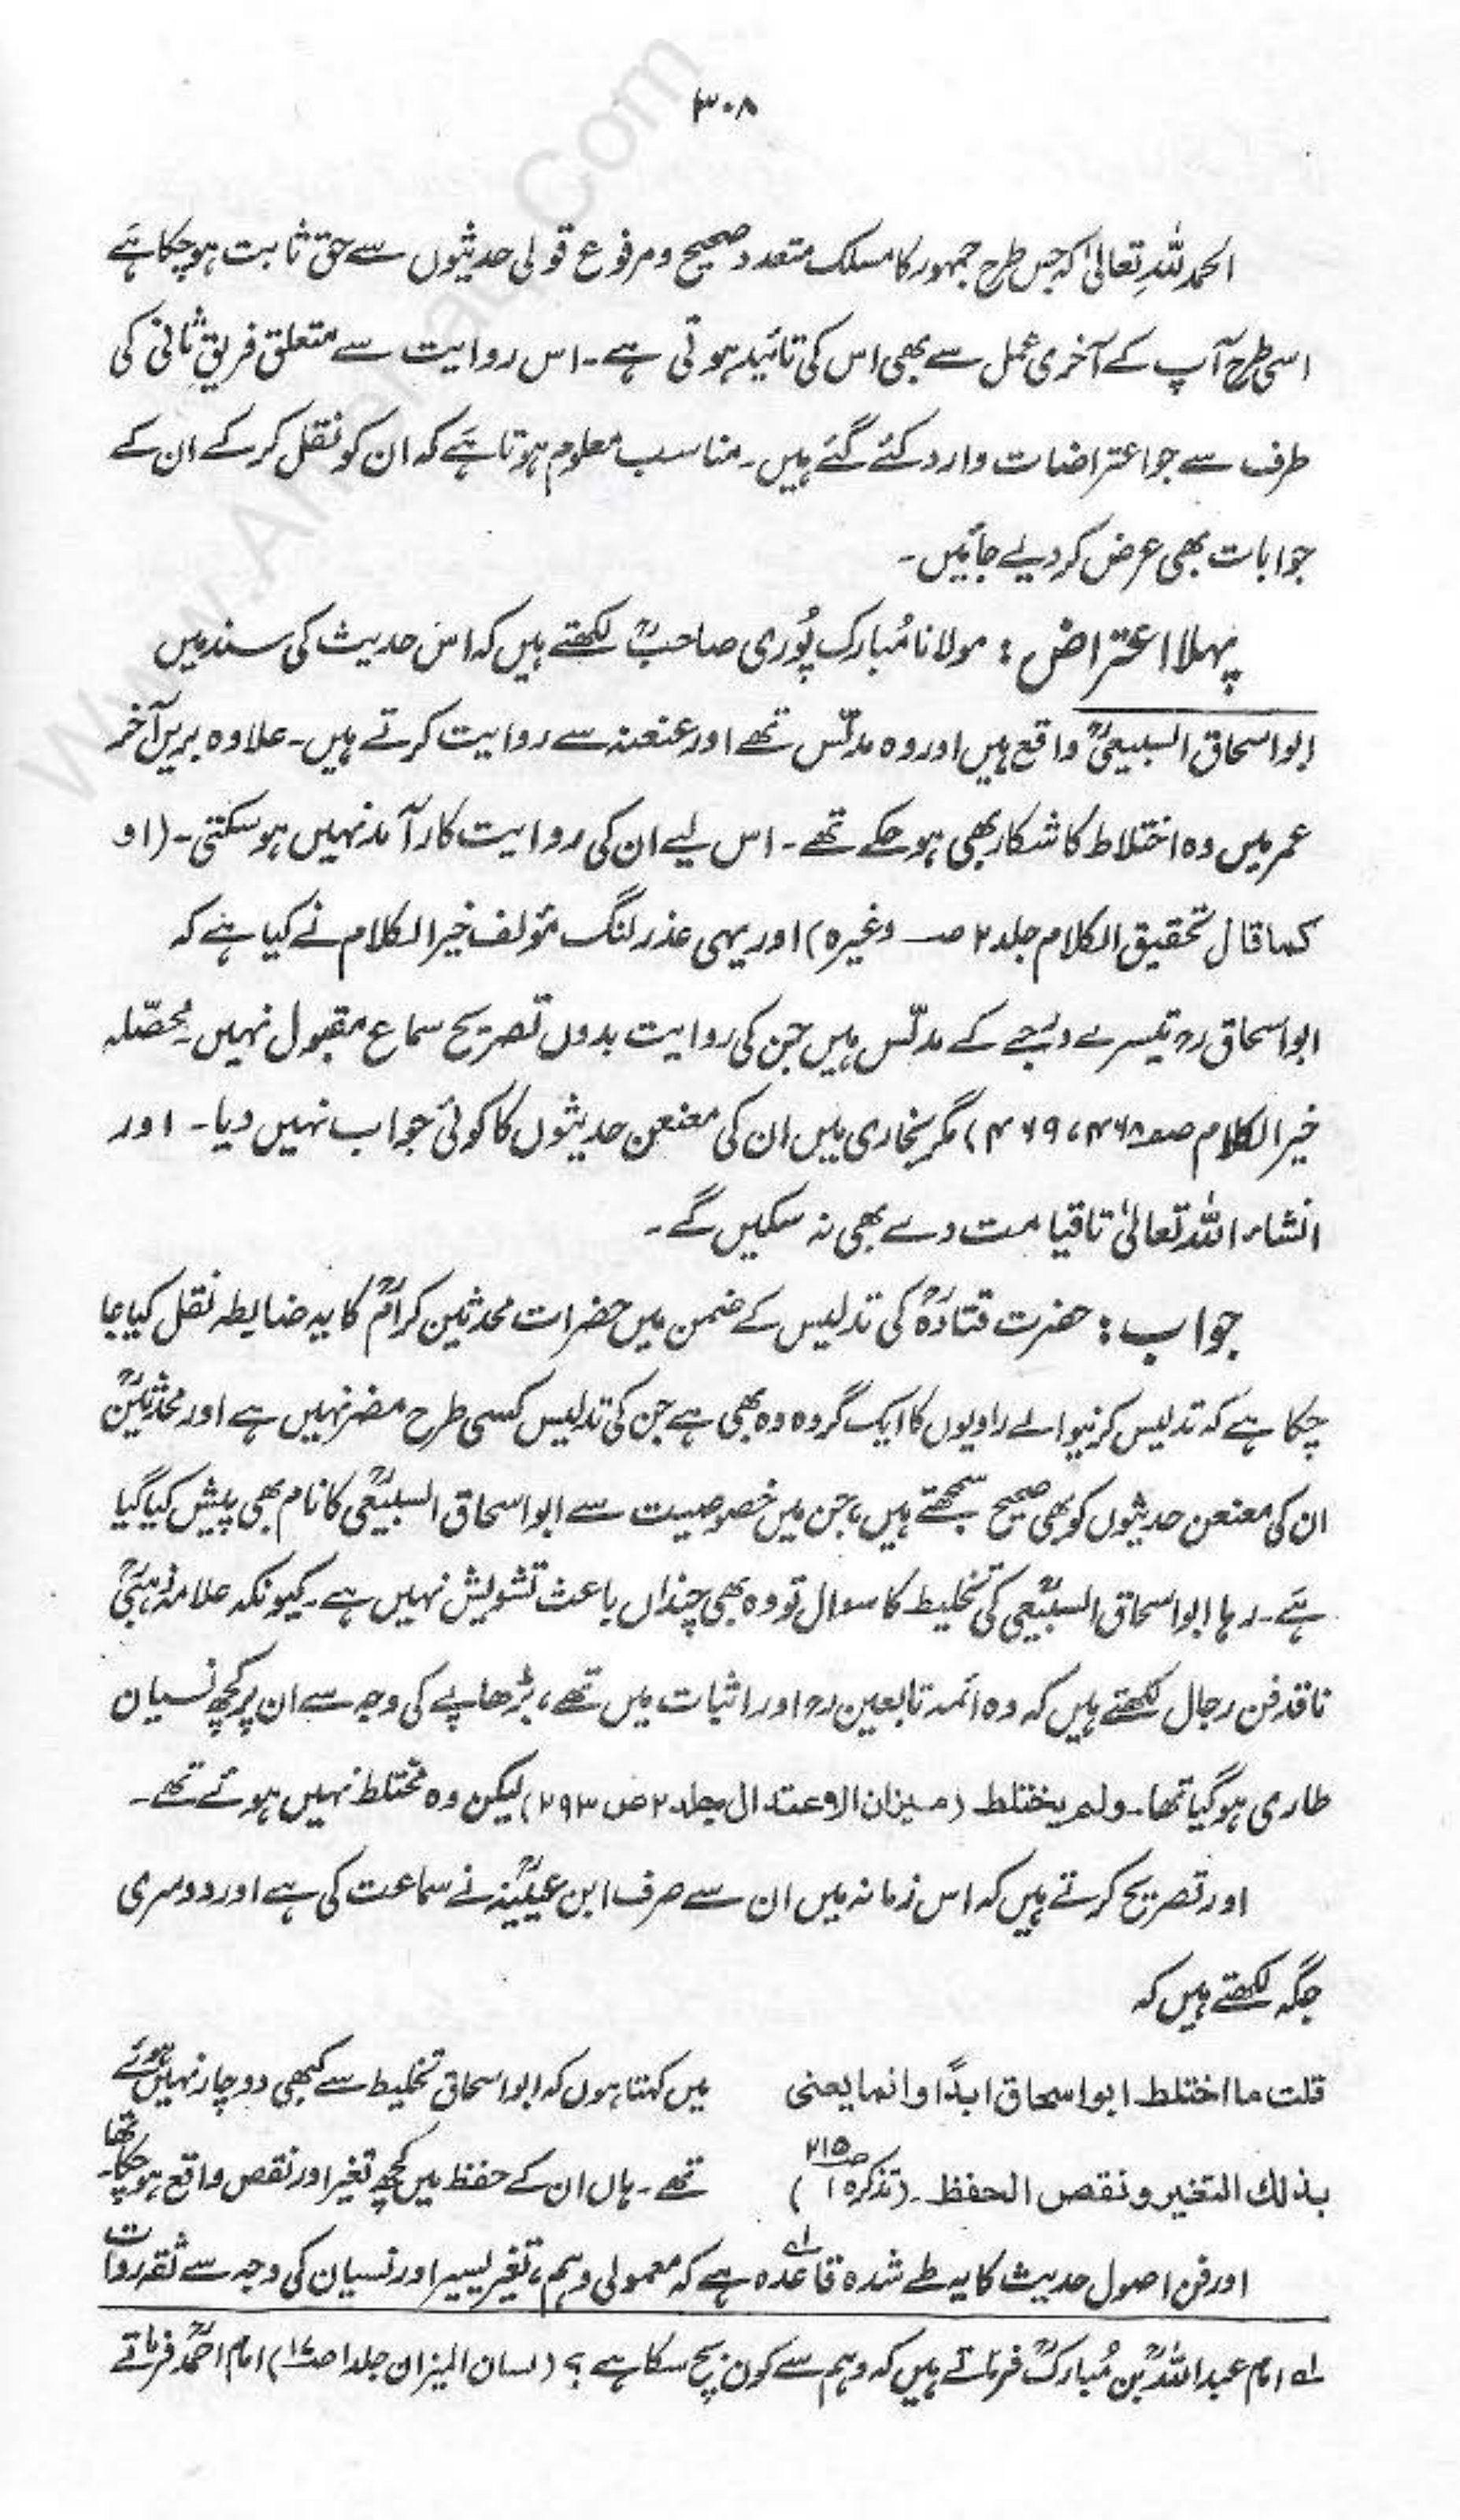 ۳۰۸
الحمد للہ تعالیٰ کہ جس طرح جمہور کا مسلک متعدد صحیح و مرفوع قولی حدیثوں سے حق ثابت ہو چکا ہے
اسی طرح آپ کے آخری عمل سے بھی اس کی تائید ہوتی ہے۔ اس روایت سے متعلق فریق ثانی کی
طرف سے جو اعتراضات وارد کئے گئے ہیں۔ مناسب معلوم ہوتا ہے کہ ان کو نقل کر کے ان کے
جوابات بھی عرض کر دیے جائیں۔
پہلا اعتراض : مولانا مُبارک پُوری صاحبؒ لکھتے ہیں کہ اس حدیث کی سند میں
ابو اسحاق السبیعیؒ واقع ہیں اور وہ مدلّس تھے اور عنعنہ سے روایت کرتے ہیں۔ علاوہ بریں آخر
عمر میں وہ اختلاط کا شکار بھی ہو چکے تھے۔ اس لیے ان کی روایت کارآمد نہیں ہو سکتی۔ (او
کما قال تحقیق الکلام جلد ۲ صـ وغیرہ) اور یہی عذر لنگ مؤلف خیر الکلام نے کیا ہے کہ
ابو اسحاق رح تیسرے درجے کے مدلّس ہیں جن کی روایت بدوں تصریح سماع مقبول نہیں۔ محصّلہ
خیر الکلام صـ ۴۶۸، ۴۶۹) مگر بخاری میں ان کی معنعن حدیثوں کا کوئی جواب نہیں دیا۔ اور
انشاء اللہ تعالیٰ تا قیامت دے بھی نہ سکیں گے۔
جواب : حضرت قتادہؒ کی تدلیس کے ضمن میں حضرات محدثین کرامؒ کا یہ ضابطہ نقل کیا جا
چکا ہے کہ تدلیس کرنیوالے راویوں کا ایک گروہ وہ بھی ہے جن کی تدلیس کسی طرح مضر نہیں ہے اور محدثینؒ
ان کی معنعن حدیثوں کو بھی صحیح سمجھتے ہیں، جن میں خصوصیت سے ابو اسحاق السبیعیؒ کا نام بھی پیش کیا گیا
ہے۔ رہا ابو اسحاق السبیعیؒ کی تخلیط کا سوال تو وہ بھی چنداں باعث تشویش نہیں ہے۔ کیونکہ علامہ ذہبیؒ
ناقد فن رجال لکھتے ہیں کہ وہ ائمہ تابعین رح اور اثبات میں تھے، بڑھاپے کی وجہ سے ان پر کچھ نسیان
طاری ہو گیا تھا۔ ولم یختلط (میزان الاعتدال جلد ۲ ص ۲۹۳) لیکن وہ مختلط نہیں ہوئے تھے۔
اور تصریح کرتے ہیں کہ اس زمانہ میں ان سے صرف ابن عیینہؒ نے سماعت کی ہے اور دوسری
جگہ لکھتے ہیں کہ
قلت ما اختلط ابو اسحاق ابدًا وانما یعنی
بذلك التغیر ونقص الحفظ۔ (تذکرہ ۱ صـ ۲۱۵)
میں کہتا ہوں کہ ابو اسحاق تخلیط سے کبھی دو چار نہیں ہوئے
تھے۔ ہاں ان کے حفظ میں کچھ تغیر اور نقص واقع ہو چکا تھا۔
اور فن اصول حدیث کا یہ طے شدہ قاعدہ ہے کہ معمولی وہم، تغیر یسیر اور نسیان کی وجہ سے ثقہ روات
لہ امام عبد اللہؒ بن مُبارکؒ فرماتے ہیں کہ وہم سے کون بچ سکا ہے؟ (لسان المیزان جلد ۱ صـ ۱۷) امام احمدؒ فرماتے